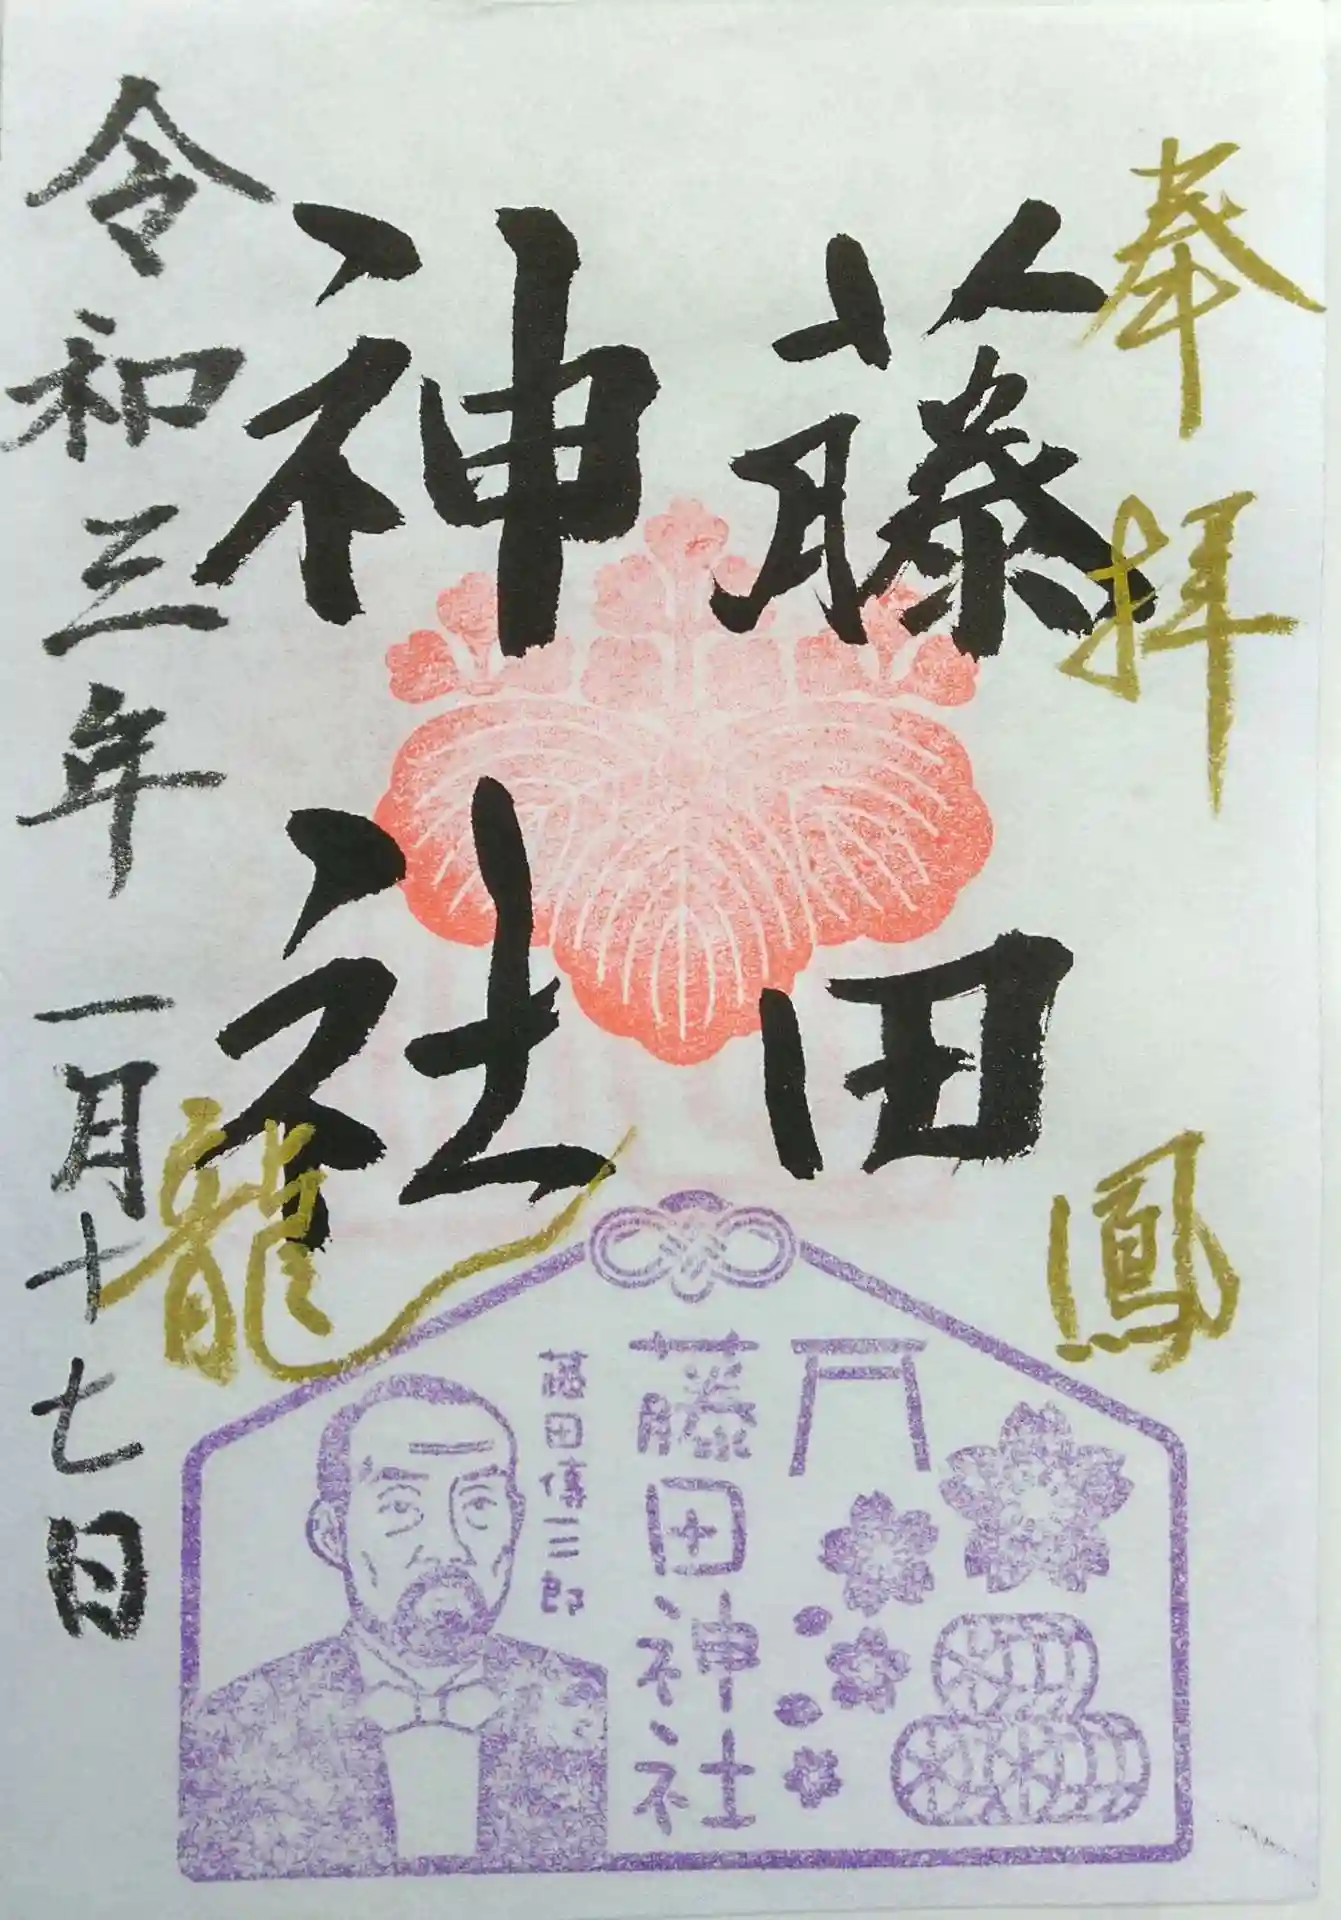 奉拝
鳳
藤田
神社
龍
令和三年一月十七日
藤田神社
藤田傳三郎